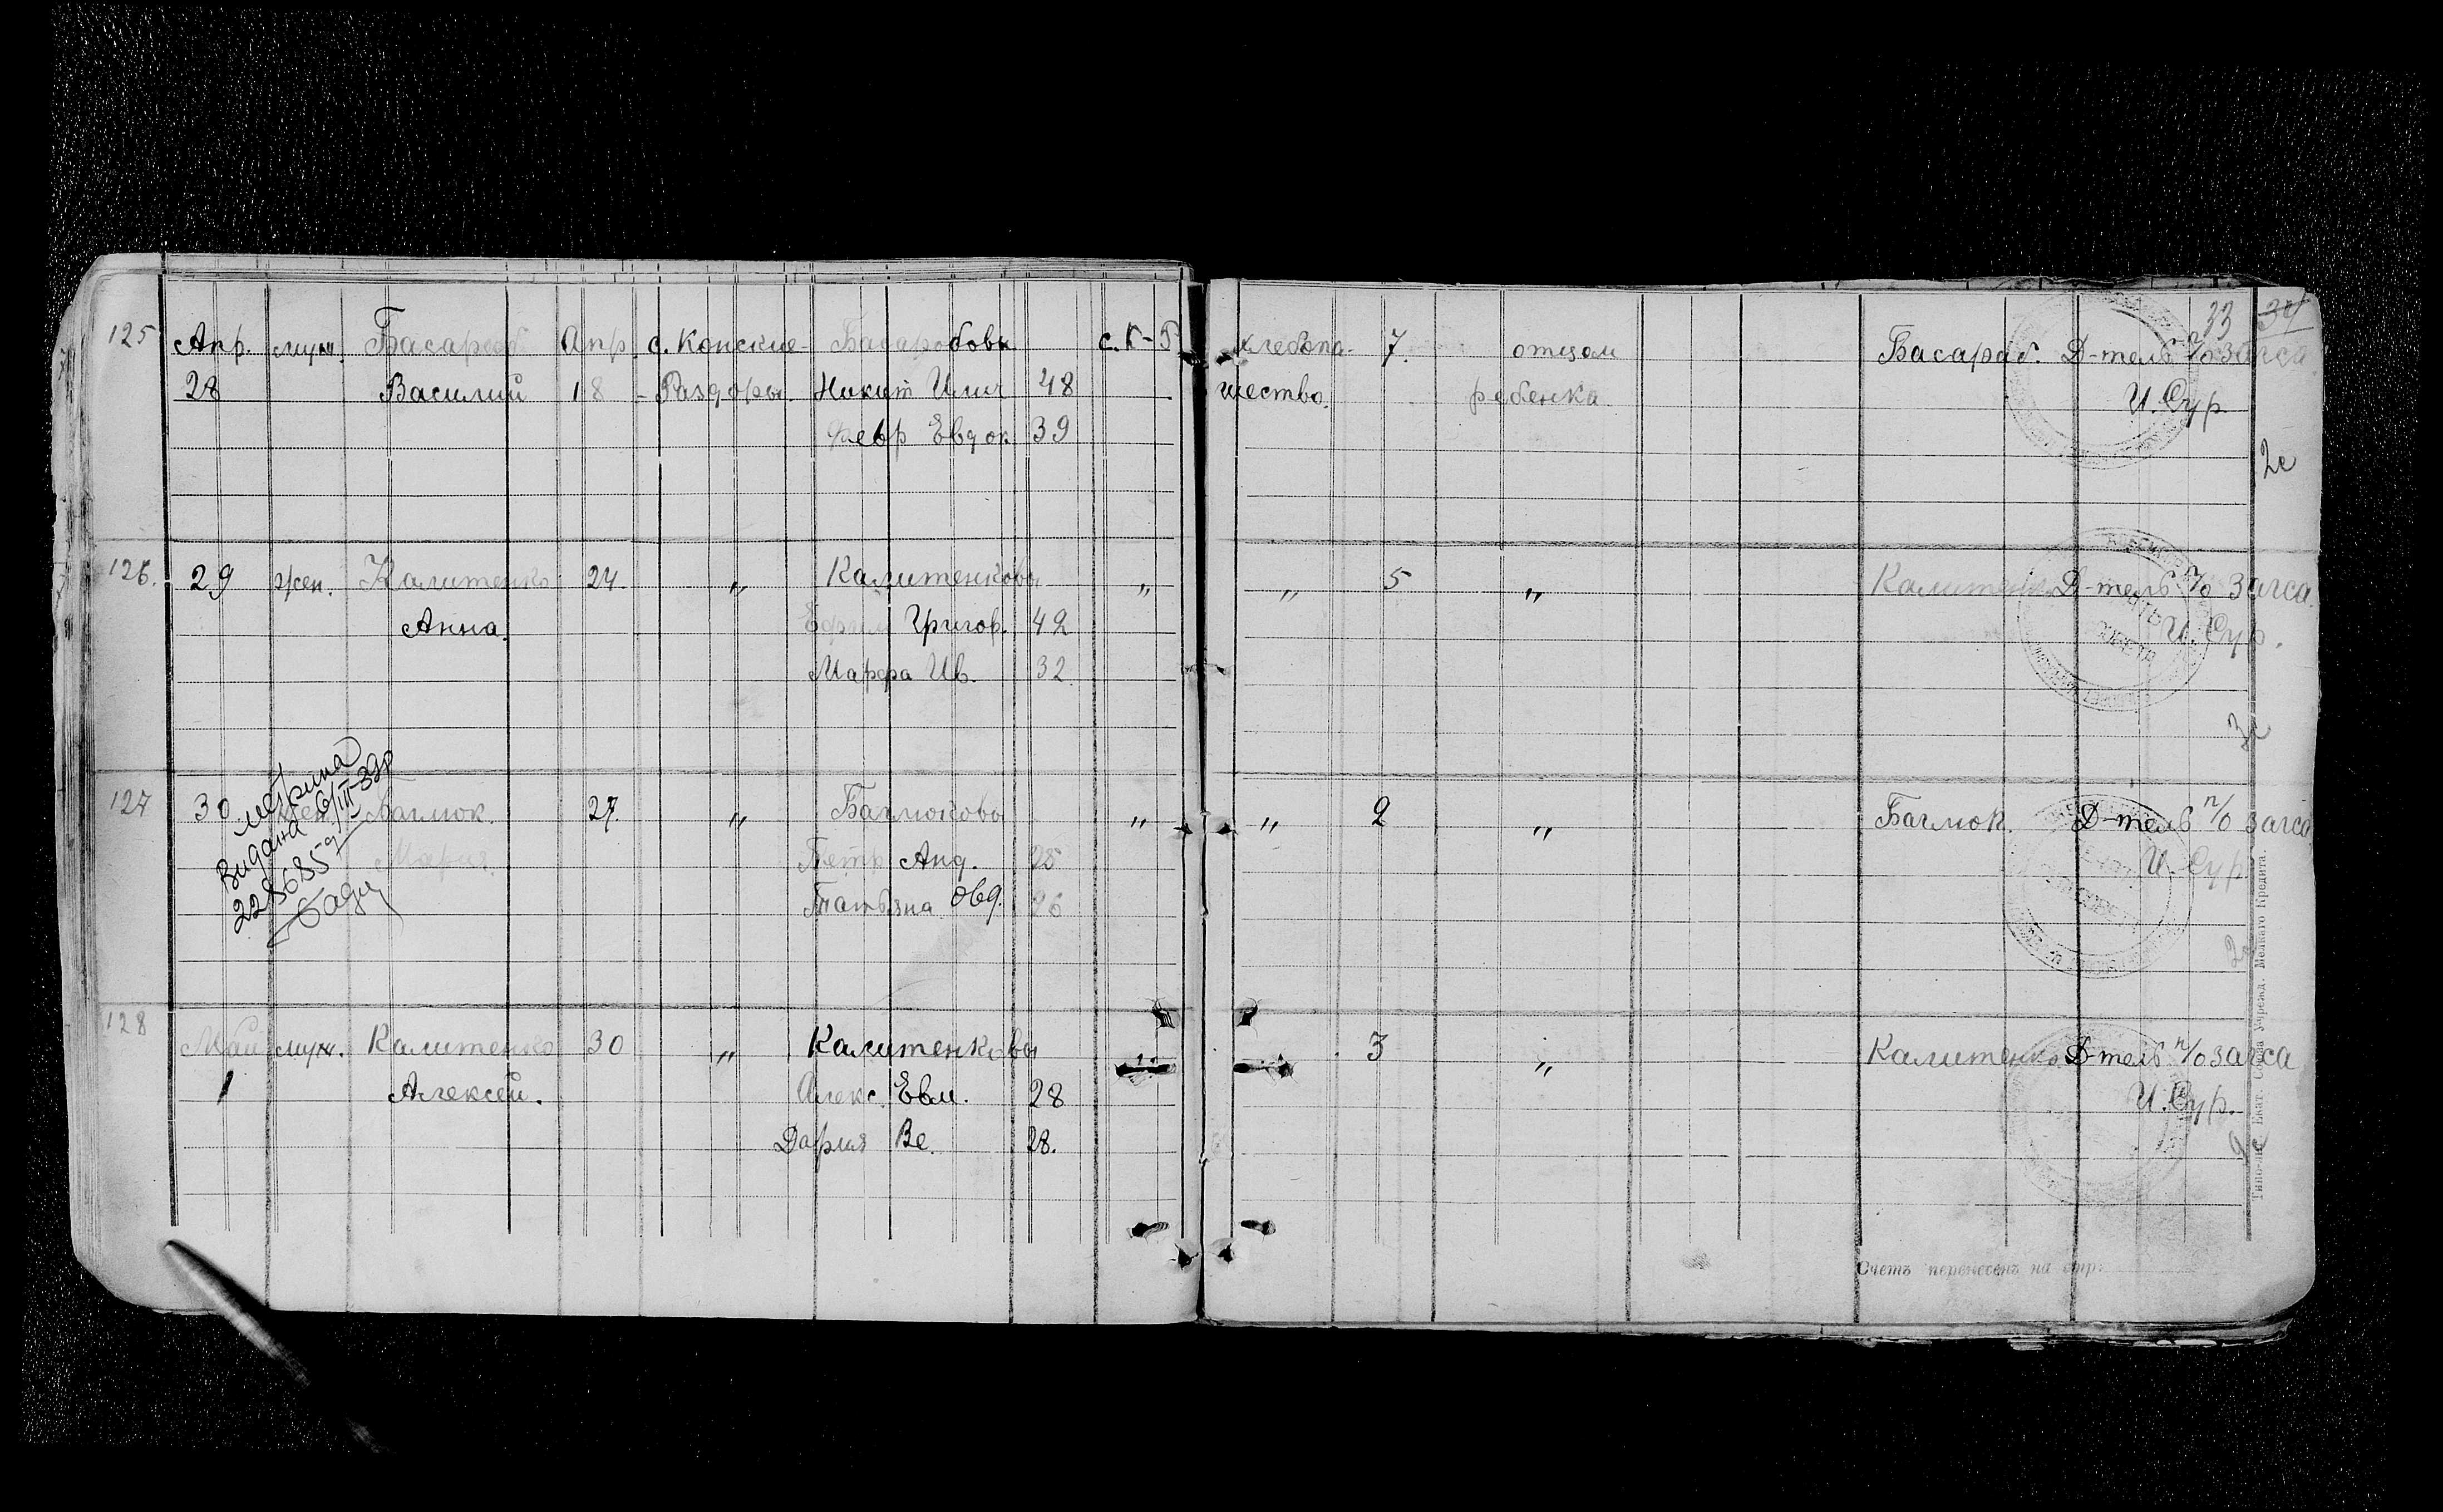 33 34
125 Апр. муж. Басараб Апр. с. Конские- Басарабовы с. К-Р. хлебопа- 7. отцом Басараб. Д-тель п/о Загса
28 Василий 18 -Раздоры. Никит Илич 48 шество. ребенка И. Сур.
Февр Евдок. 39
2с
126. 29 жен. Калитенко 24. " Калитенковы " " 5 " Калитенко Д-тель п/о Загса.
Анна. Ефим Григор. 42 И. Сур.
Марфа Ив. 32.
метрика
Видана 6/III-39р
127 30 жен. Баглюк. 27. " Баглюковы " " 2 " Баглюк. Д-тель п/о Загса
225685
Мария. Петр Анд. 25 И. Сур
Татьяна Овд. 26
128
Май муж. Калитенко 30 " Калитенковы " 3 " Калитенко Д-тель п/о загса
1 Алексей. Алекс. Евм. 28 И. Сур.
Дария Ве. 28.
Счетъ перенесенъ на стр:
Типо-лит. Екат. Союза Учрежд. Мелкаго Кредита.